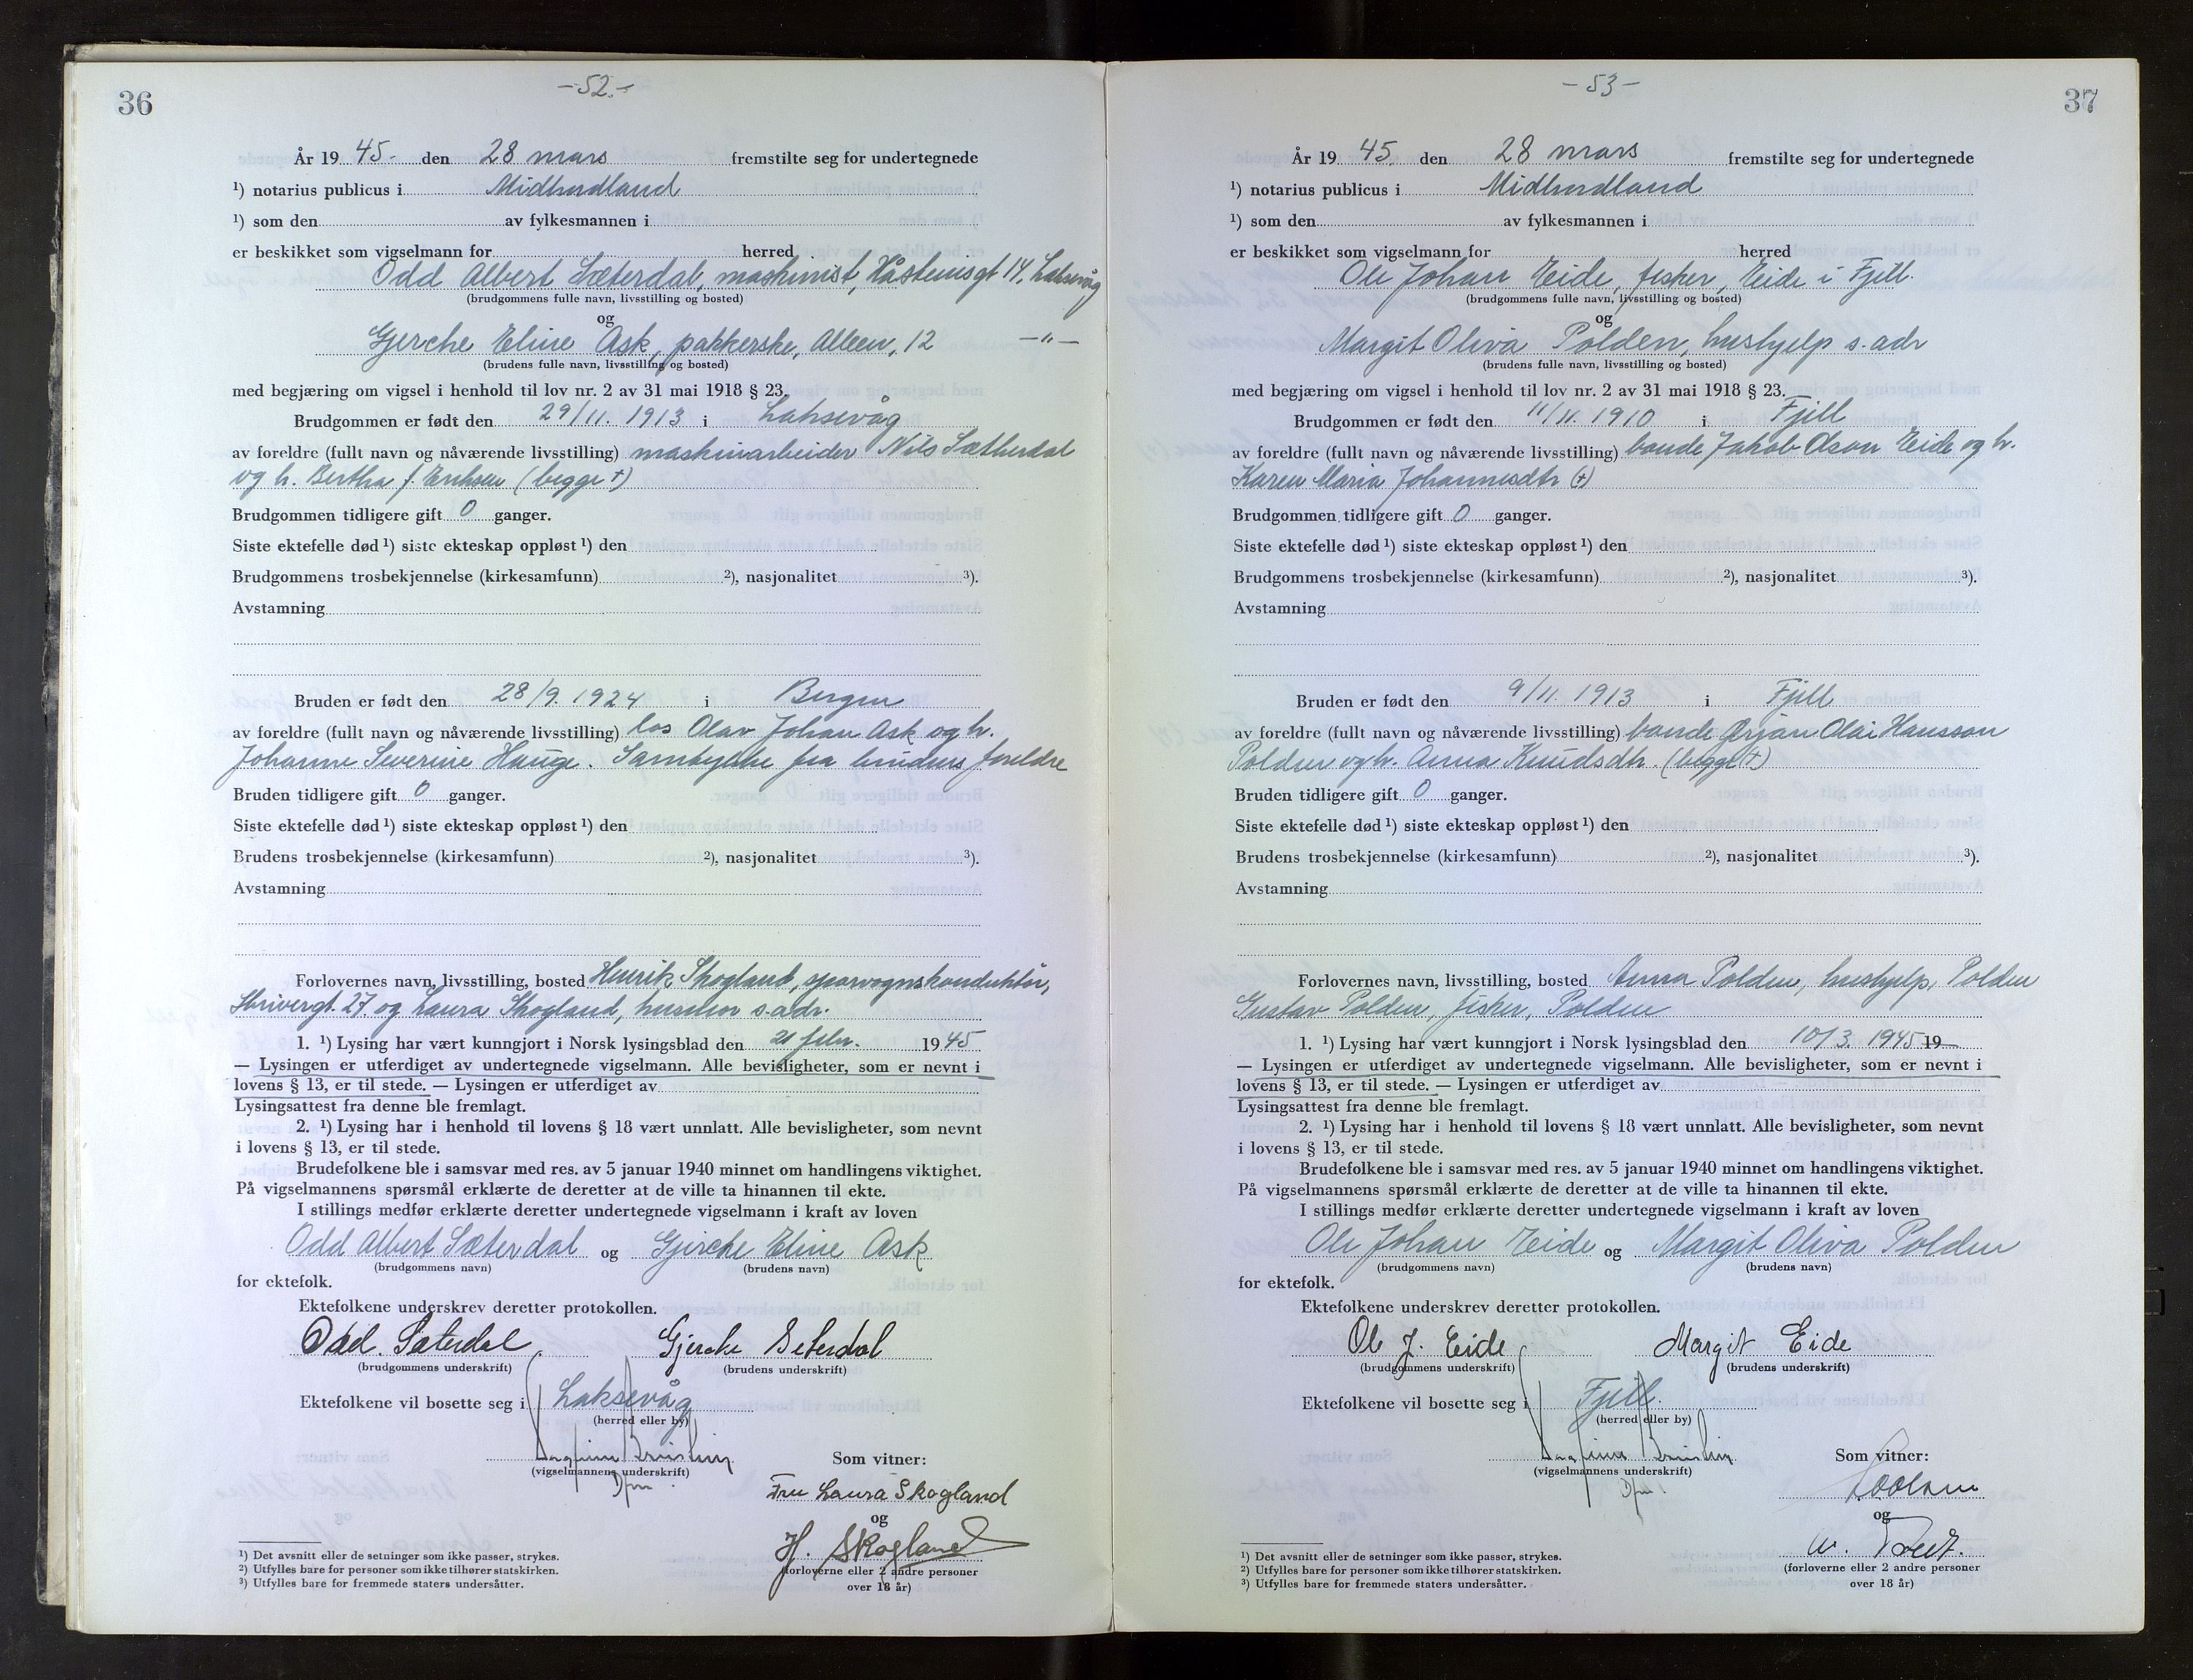 36
-52.-
År 19 45.- den 28 mars fremstilte seg for undertegnede
¹) notarius publicus i Midhordland
¹) som den av fylkesmannen i
er beskikket som vigselmann for herred
Odd Albert Sæterdal, maskinist, Håsteinsgt 14, Laksevåg
(brudgommens fulle navn, livsstilling og bosted)
og
Gjerche Eline Ask, pakkerske, Alleen, 12 -"-
(brudens fulle navn, livsstilling og bosted)
med begjæring om vigsel i henhold til lov nr. 2 av 31 mai 1918 § 23.
Brudgommen er født den 29/11. 1913 i Laksevåg
av foreldre (fullt navn og nåværende livsstilling) maskinarbeider Nils Sætherdal
og h. Bertha f. Eriksen (begge †)
Brudgommen tidligere gift 0 ganger.
Siste ektefelle død ¹) siste ekteskap oppløst ¹) den
Brudgommens trosbekjennelse (kirkesamfunn) ²), nasjonalitet ³).
Avstamning
Bruden er født den 28/9. 1924 i Bergen
av foreldre (fullt navn og nåværende livsstilling) los Olav Johan Ask og h.
Johanne Severine Hauge. Samtykke fra brudens foreldre
Bruden tidligere gift 0 ganger.
Siste ektefelle død ¹) siste ekteskap oppløst ¹) den
Brudens trosbekjennelse (kirkesamfunn) ²), nasjonalitet ³).
Avstamning
Forlovernes navn, livsstilling, bosted Henrik Skogland, sporvognskonduktør,
Skrivergt. 27 og Laura Skogland, husmor s.adr.
1. ¹) Lysing har vært kunngjort i Norsk lysingsblad den 21 febr. 1945
— Lysingen er utferdiget av undertegnede vigselmann. Alle bevisligheter, som er nevnt i
lovens § 13, er til stede. — Lysingen er utferdiget av
Lysingsattest fra denne ble fremlagt.
2. ¹) Lysing har i henhold til lovens § 18 vært unnlatt. Alle bevisligheter, som nevnt
i lovens § 13, er til stede.
Brudefolkene ble i samsvar med res. av 5 januar 1940 minnet om handlingens viktighet.
På vigselmannens spørsmål erklærte de deretter at de ville ta hinannen til ekte.
I stillings medfør erklærte deretter undertegnede vigselmann i kraft av loven
Odd Albert Sæterdal og Gjerche Eline Ask
(brudgommens navn) (brudens navn)
for ektefolk.
Ektefolkene underskrev deretter protokollen.
Odd. Sæterdal Gjerche Seterdal
(brudgommens underskrift) (brudens underskrift)
Ektefolkene vil bosette seg i Laksevåg
(herred eller by)
Som vitner:
(vigselmannens underskrift)
Dfm
Fru Laura Skogland
og
H. Skogland
(forloverne eller 2 andre personer
over 18 år)
¹) Det avsnitt eller de setninger som ikke passer, strykes.
²) Utfylles bare for personer som ikke tilhører statskirken.
³) Utfylles bare for fremmede staters undersåtter.
37
-53-
År 19 45. den 28 mars fremstilte seg for undertegnede
¹) notarius publicus i Midhordland
¹) som den av fylkesmannen i
er beskikket som vigselmann for herred
Ole Johan Eide, fisker, Eide i Fjell.
(brudgommens fulle navn, livsstilling og bosted)
og
Margit Oliva Polden, hushjelp s. adr
(brudens fulle navn, livsstilling og bosted)
med begjæring om vigsel i henhold til lov nr. 2 av 31 mai 1918 § 23.
Brudgommen er født den 11/11. 1910 i Fjell
av foreldre (fullt navn og nåværende livsstilling) bonde Jakob Olson Eide og h.
Karen Maria Johannesdtr (†)
Brudgommen tidligere gift 0 ganger.
Siste ektefelle død ¹) siste ekteskap oppløst ¹) den
Brudgommens trosbekjennelse (kirkesamfunn) ²), nasjonalitet ³).
Avstamning
Bruden er født den 9/11. 1913 i Fjell
av foreldre (fullt navn og nåværende livsstilling) bonde Ørjan Olai Hansson
Polden og h. Anna Knudsdtr. (begge †)
Bruden tidligere gift 0 ganger.
Siste ektefelle død ¹) siste ekteskap oppløst ¹) den
Brudens trosbekjennelse (kirkesamfunn) ²), nasjonalitet ³).
Avstamning
Forlovernes navn, livsstilling, bosted Anna Polden, hushjelp, Polden
Gustav Polden, fisker, Polden
1. ¹) Lysing har vært kunngjort i Norsk lysingsblad den 10/3. 1945 19—
— Lysingen er utferdiget av undertegnede vigselmann. Alle bevisligheter, som er nevnt i
lovens § 13, er til stede. — Lysingen er utferdiget av
Lysingsattest fra denne ble fremlagt.
2. ¹) Lysing har i henhold til lovens § 18 vært unnlatt. Alle bevisligheter, som nevnt
i lovens § 13, er til stede.
Brudefolkene ble i samsvar med res. av 5 januar 1940 minnet om handlingens viktighet.
På vigselmannens spørsmål erklærte de deretter at de ville ta hinannen til ekte.
I stillings medfør erklærte deretter undertegnede vigselmann i kraft av loven
Ole Johan Eide og Margit Oliva Polden
(brudgommens navn) (brudens navn)
for ektefolk.
Ektefolkene underskrev deretter protokollen.
Ole J. Eide Margit Eide
(brudgommens underskrift) (brudens underskrift)
Ektefolkene vil bosette seg i Fjell.
(herred eller by)
Som vitner:
(vigselmannens underskrift)
Dfm
og
(forloverne eller 2 andre personer
over 18 år)
¹) Det avsnitt eller de setninger som ikke passer, strykes.
²) Utfylles bare for personer som ikke tilhører statskirken.
³) Utfylles bare for fremmede staters undersåtter.